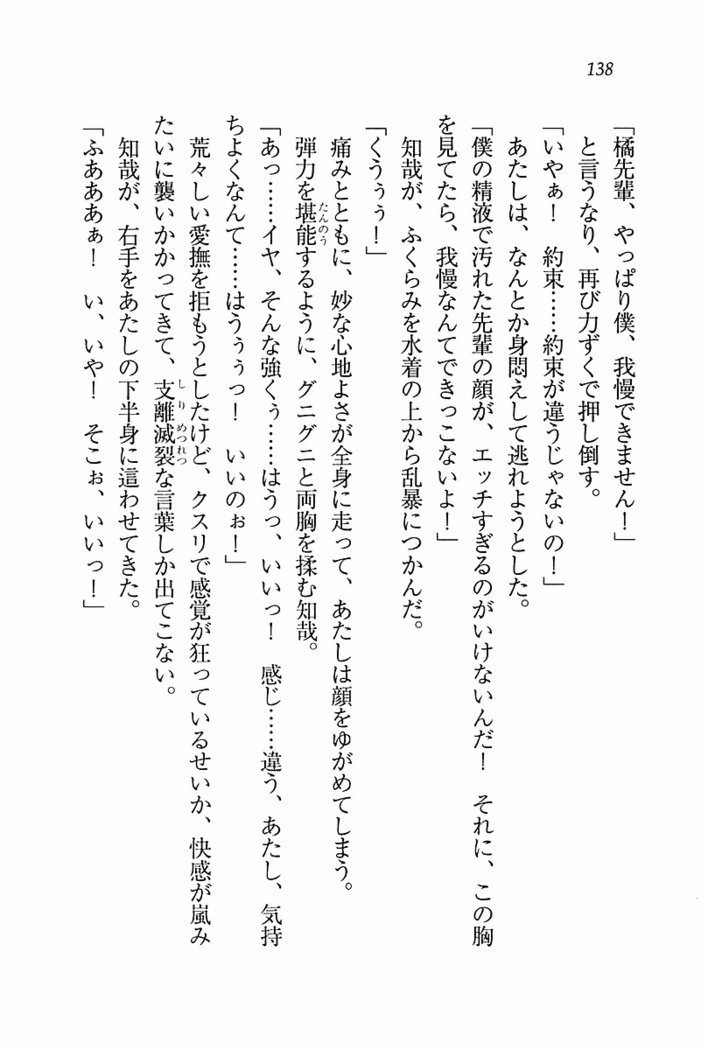 138
「橘先輩、やっぱり僕、我慢できません！」
と言うなり、再び力ずくで押し倒す。
「いやぁ！　約束……約束が違うじゃないの！」
あたしは、なんとか身悶えして逃れようとした。
「僕の精液で汚れた先輩の顔が、エッチすぎるのがいけないんだ！　それに、この胸
を見てたら、我慢なんてできっこないよ！」
知哉が、ふくらみを水着の上から乱暴につかんだ。
「くうぅぅ！」
痛みとともに、妙な心地よさが全身に走って、あたしは顔をゆがめてしまう。
弾力を堪能するように、グニグニと両胸を揉む知哉。
「あっ……イヤ、そんな強くぅ……はうっ、いいっ！　感じ……違う、あたし、気持
ちよくなんて……はうぅぅっ！　いいのぉ！」
荒々しい愛撫を拒もうとしたけど、クスリで感覚が狂っているせいか、快感が嵐み
たいに襲いかかってきて、支離滅裂な言葉しか出てこない。
知哉が、右手をあたしの下半身に這わせてきた。
「ふああああぁ！　い、いや！　そこぉ、いいっ！」